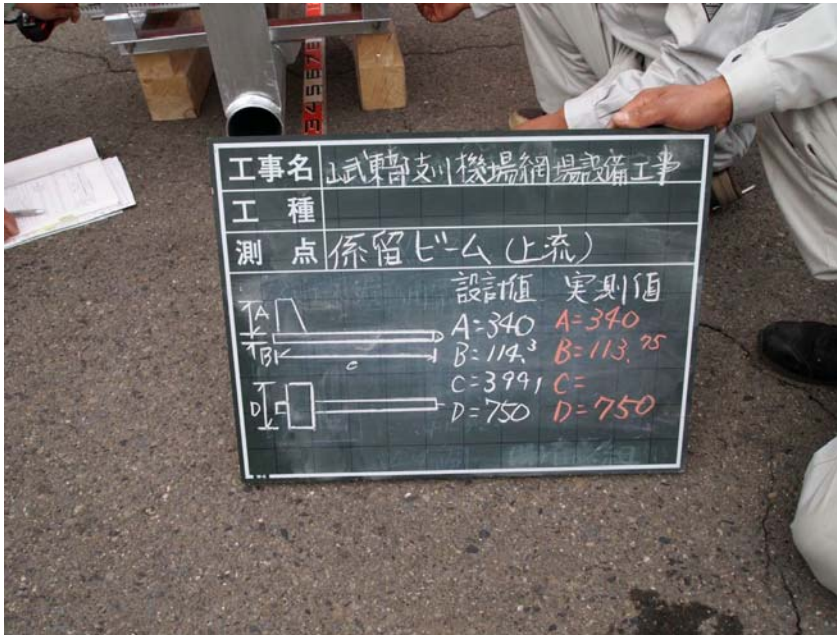 工事名 山武東部支川機場網場設備工事
工種
測点 係留ビーム(上流)
設計値 実測値
A A=340 A=340
B C B=114.3 B=113.75
C=3991 C=
D D=750 D=750